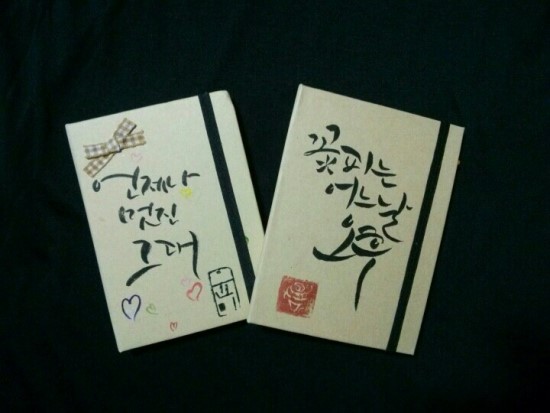 언제나
멋진
그대
꽃피는
어느날